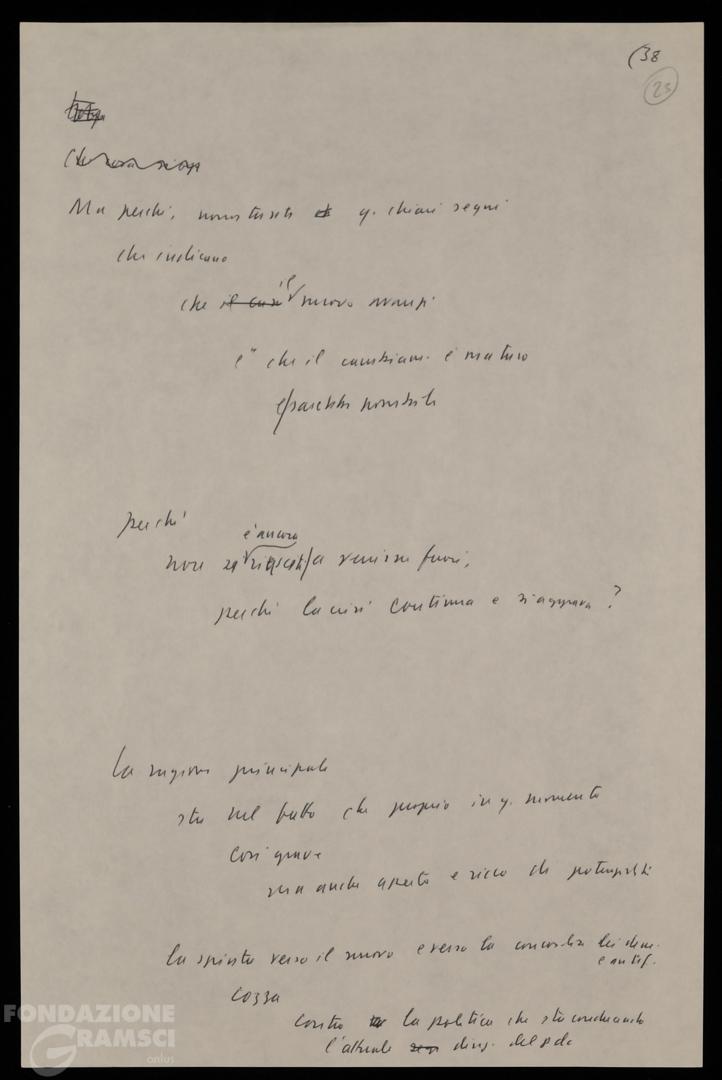 (38
23
Ma perché, nonostante q. chiari segni
che indicano
che il nuovo avanza
e che il cambiam. è maturo
e possibile
perché
non si è ancora riusciti a venirne fuori,
perché la crisi continua e si aggrava?
La ragione principale
sta nel fatto che proprio in q. momento
così grave
ma anche aperto e ricco di potenzialità
la spinta verso il nuovo e verso la concordia dei dem.
e antif.
cozza
contro la politica che sta conducendo
l'attuale dirig. del p dc
FONDAZIONE
GRAMSCI
onlus